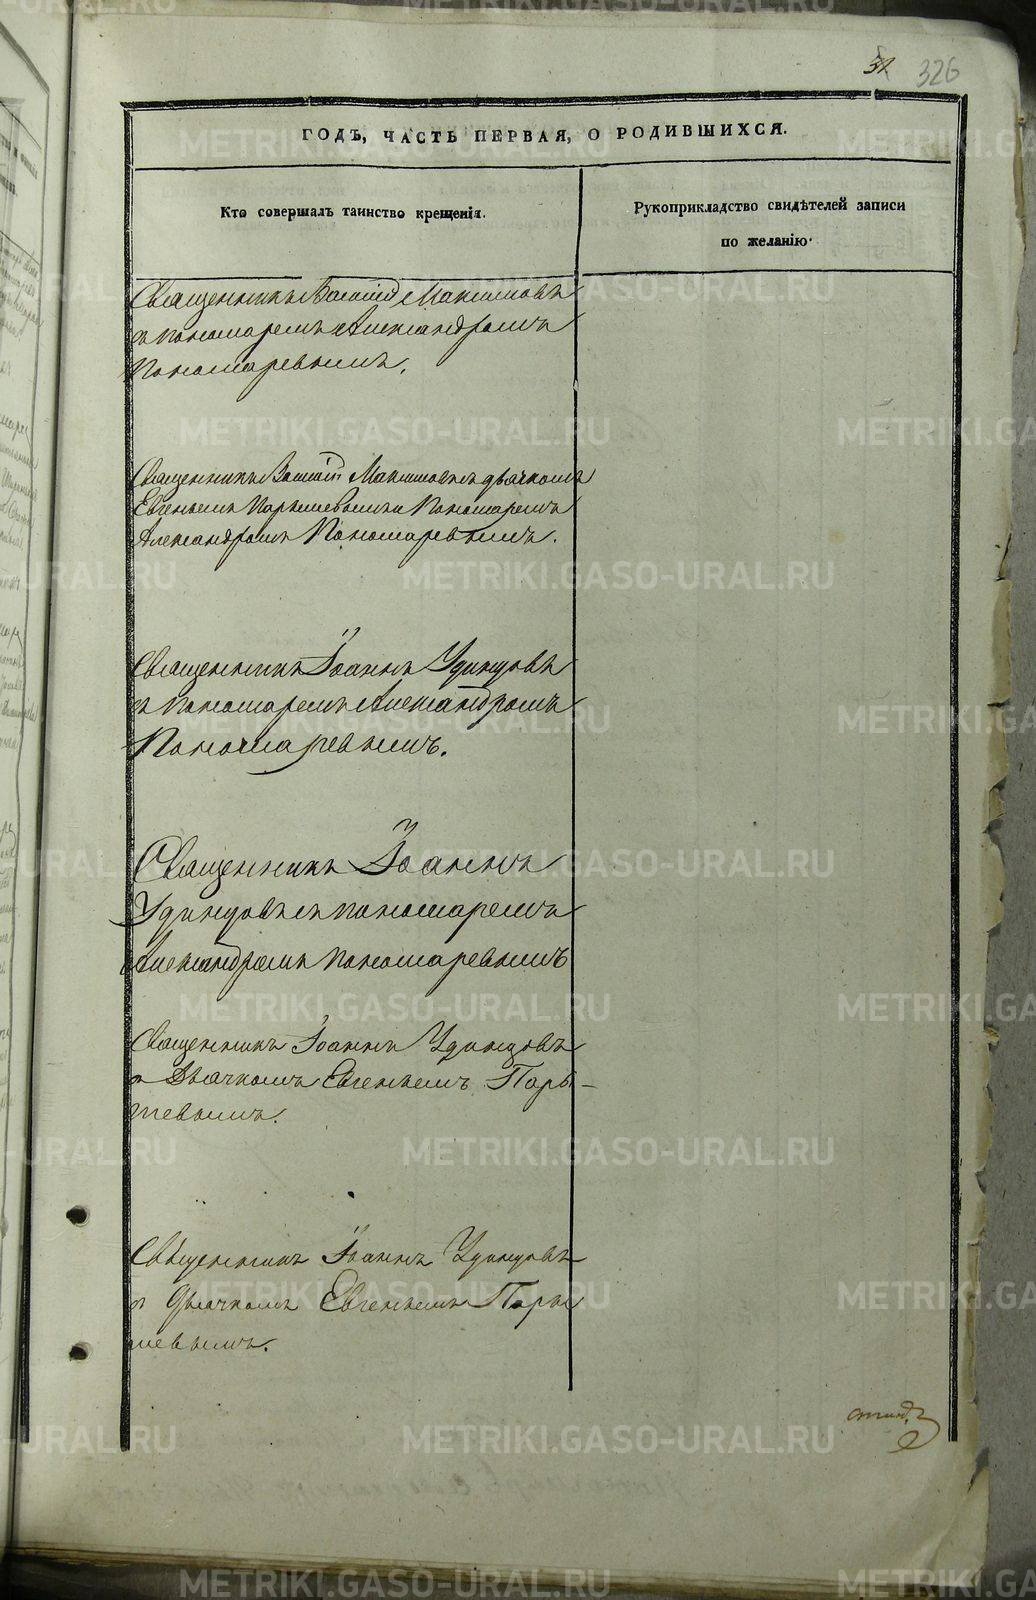 326
ГОДЪ, ЧАСТЬ ПЕРВАЯ, О РОДИВШИХСЯ.
Кто совершалъ таинство крещенія.
Рукоприкладство свидѣтелей записи
по желанію.
Священникъ Василій Максимовъ
съ пономаремъ Александромъ
Пономаревымъ.
Священникъ Василій Максимовъ съ дьячкомъ
Евгеньемъ Парышевымъ и Пономаремъ
Александромъ Пономаревымъ.
Священникъ Іоаннъ Удинцовъ
съ пономаремъ Александромъ
Пономаревымъ.
Священникъ Іоаннъ
Удинцовъ съ пономаремъ
Александромъ Пономаревымъ
Священникъ Іоаннъ Удинцовъ
съ Дьячкомъ Евгеньемъ Пары-
шевымъ.
Священникъ Іоаннъ Удинцовъ
съ Дьячкомъ Евгеньемъ Пары
шевымъ.
METRIKI.GASO-URAL.RU